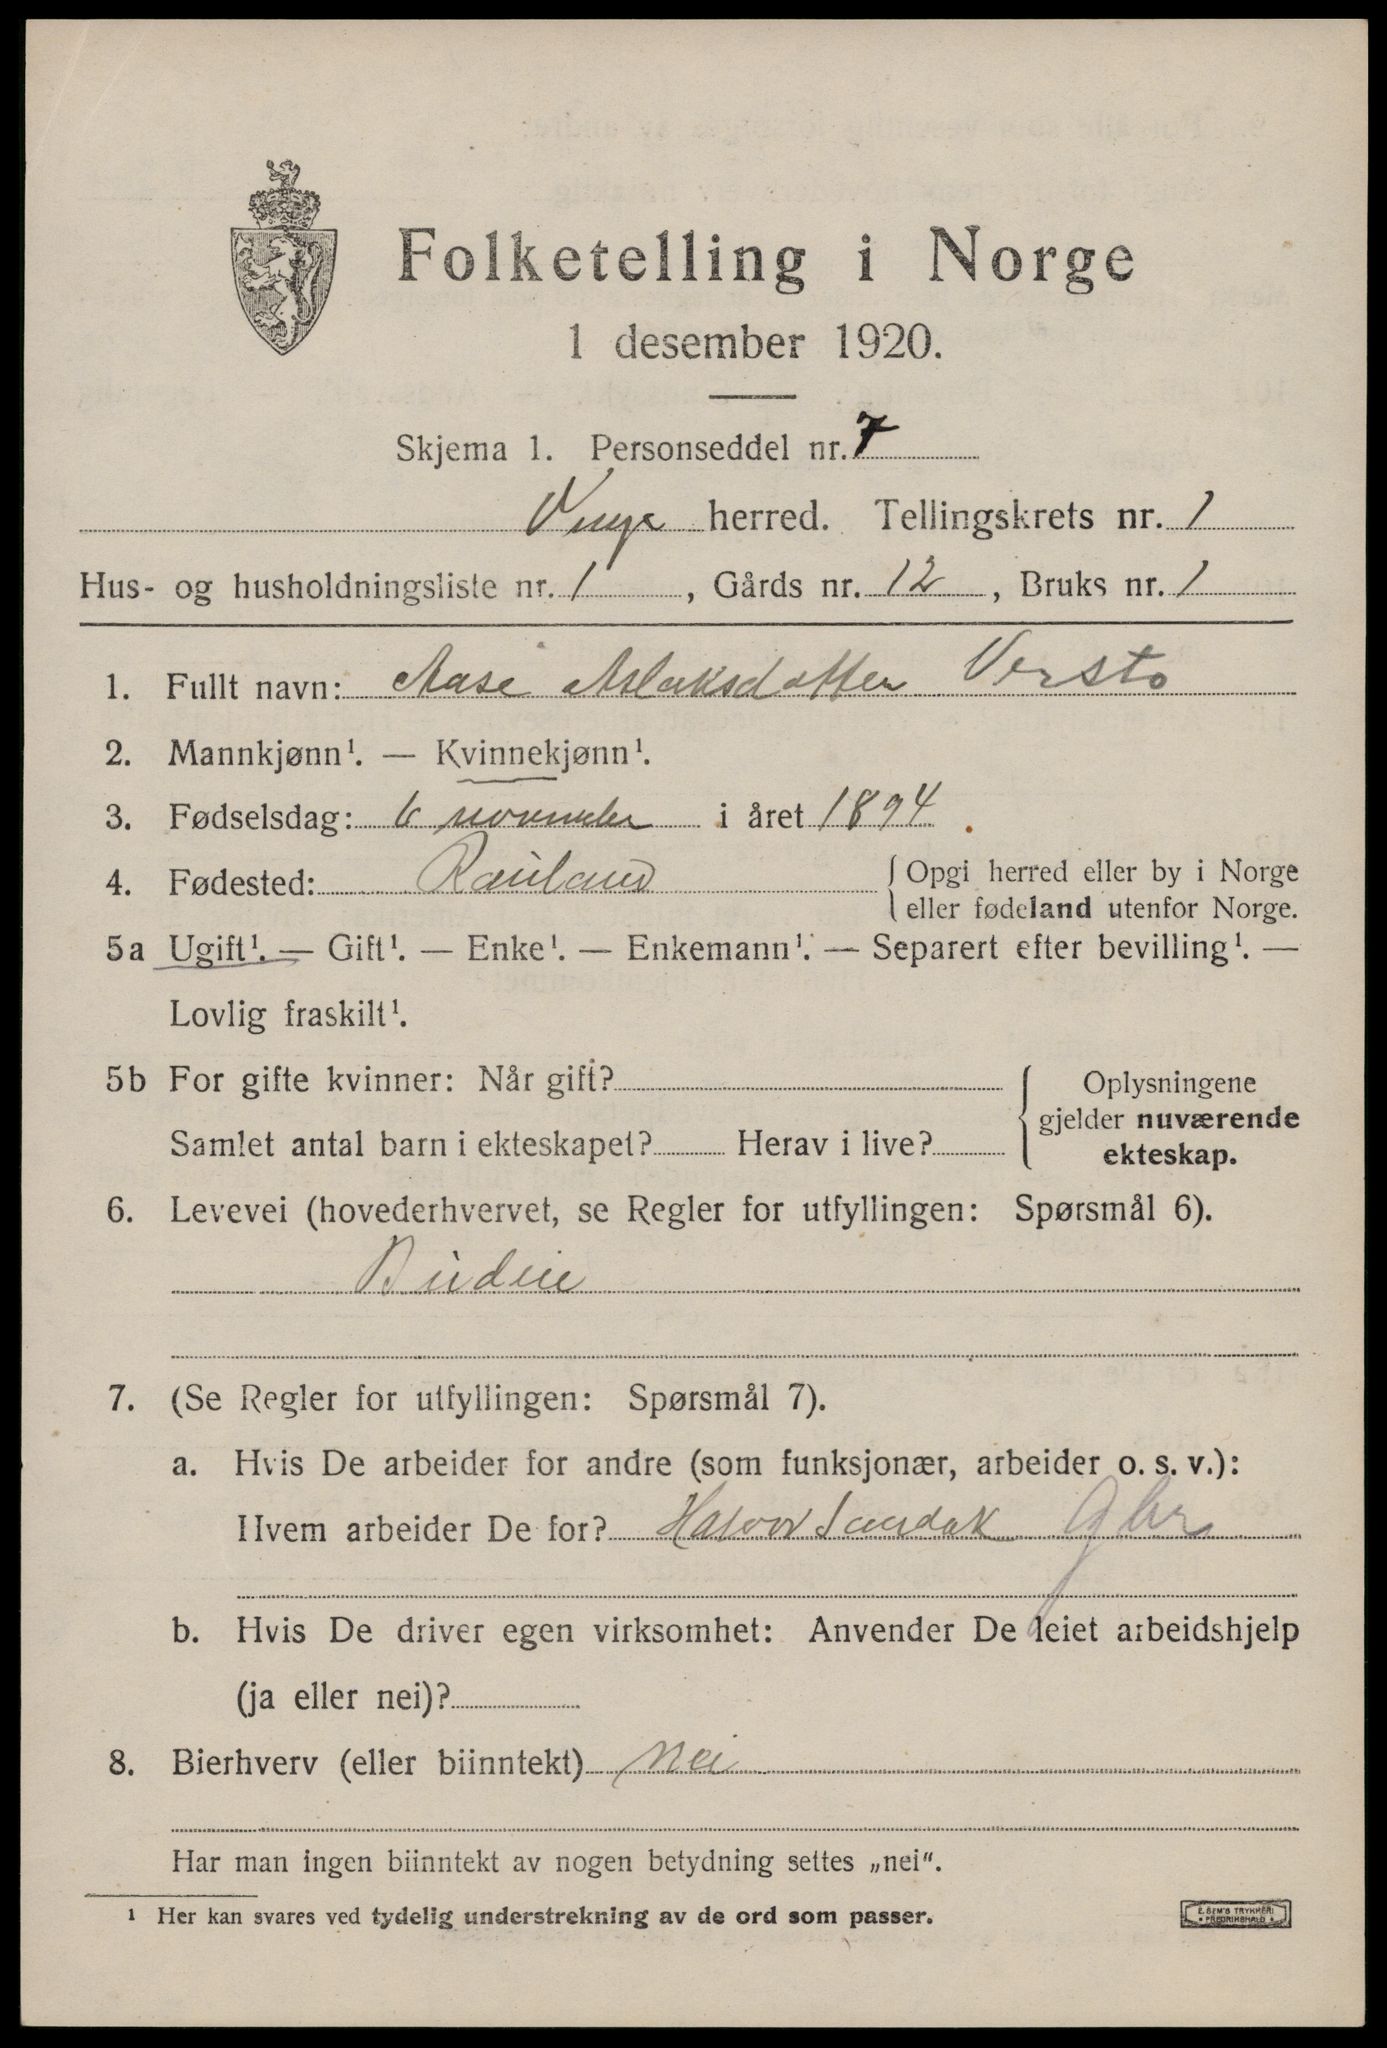 Folketelling i Norge
1 desember 1920.
Skjema 1. Personseddel nr. 7
Vinje herred. Tellingskrets nr. 1
Hus- og husholdningsliste nr. 1, Gårds nr. 12, Bruks nr. 1
1. Fullt navn: Aase Aslaksdatter Versto
2. Mannkjønn¹. — Kvinnekjønn¹.
3. Fødselsdag: 6 november i året 1894.
4. Fødested: Rauland { Opgi herred eller by i Norge
eller fødeland utenfor Norge.
5a Ugift¹. — Gift¹. — Enke¹. — Enkemann¹. — Separert efter bevilling¹. —
Lovlig fraskilt¹.
5b For gifte kvinner: Når gift?
Samlet antal barn i ekteskapet? Herav i live?
{ Oplysningene
gjelder nuværende
ekteskap.
6. Levevei (hovederhvervet, se Regler for utfyllingen: Spørsmål 6).
Budeie
7. (Se Regler for utfyllingen: Spørsmål 7).
a. Hvis De arbeider for andre (som funksjonær, arbeider o. s. v.):
Hvem arbeider De for? Halvor Sandok Gbr
b. Hvis De driver egen virksomhet: Anvender De leiet arbeidshjelp
(ja eller nei)?
8. Bierhverv (eller biinntekt) nei
Har man ingen biinntekt av nogen betydning settes „nei".
¹ Her kan svares ved tydelig understrekning av de ord som passer.
E. SEM'S TRYKKERI
FREDRIKSHALD